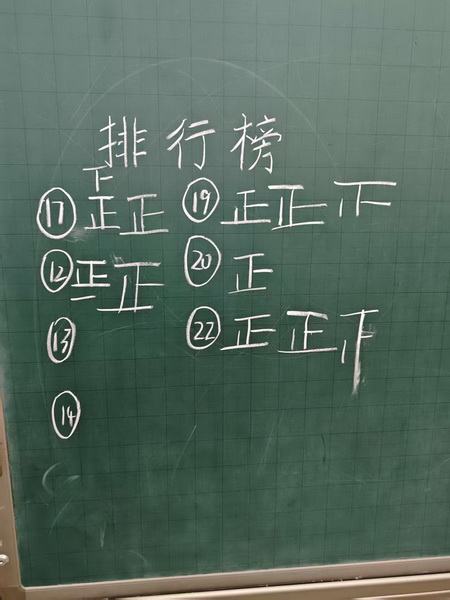 排行榜
下
⑰ 正正 ⑲ 正正下
⑫ 正正 ⑳ 正
⑬ ㉒ 正正
⑭